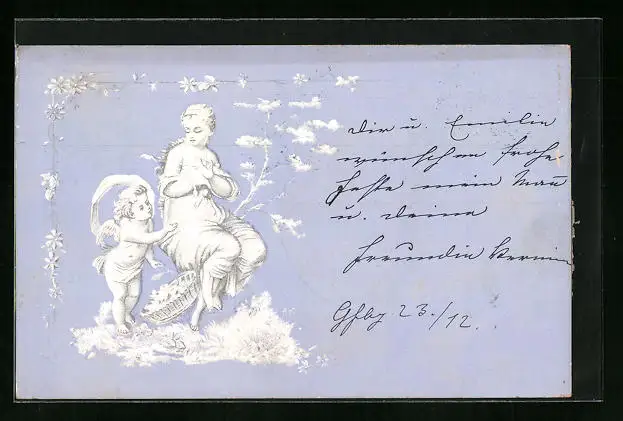 Dir u. Emilie
wünschen frohe
Feste mein Mann
u. Deine
Freundin
23./12.